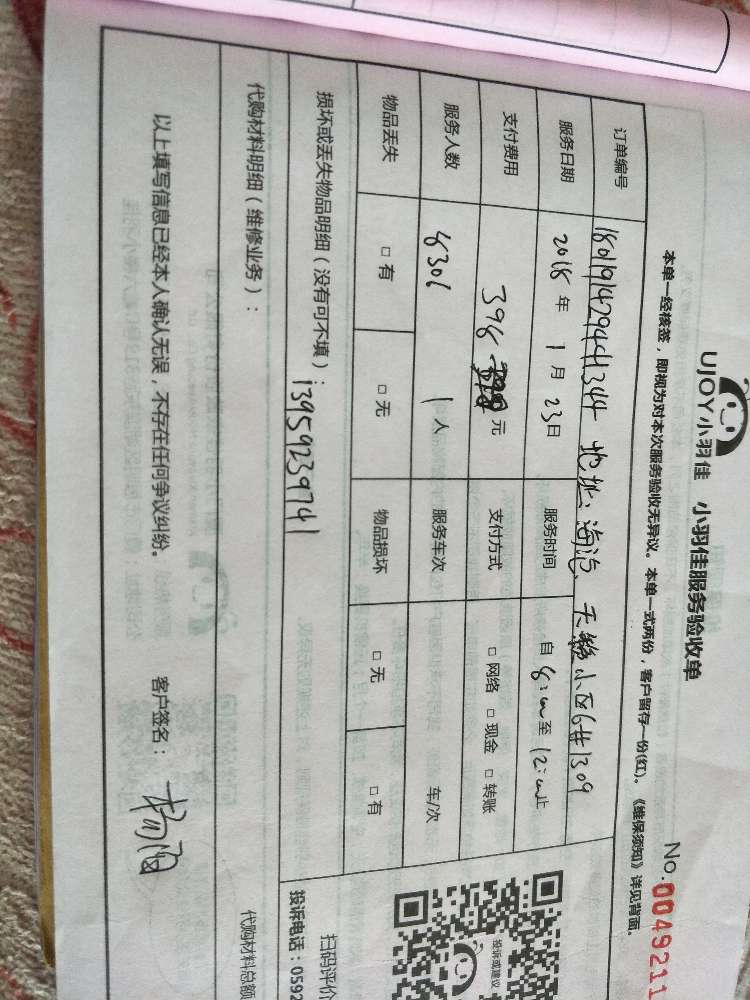 UJOY小羽佳 小羽佳服务验收单
No.0049211
本单一经核签，即视为对本次服务验收无异议。本单一式两份，客户留存一份(红)。《维保须知》详见背面。
订单编号 1801191429441344 地址：海沧、天籁小区6#1309
服务日期 2018年1月23日 服务时间 自8:00至12:00止
支付费用 398 元 支付方式 □网络 □现金 □转账
服务人数 1人 服务车次 车/次
物品丢失 □有 □无 物品损坏 □无 □有
损坏或丢失物品明细（没有可不填）：13959239741
代购材料明细（维修业务）：
代购材料总额
以上填写信息已经本人确认无误，不存在任何争议纠纷。 客户签名：
投诉或建议
扫码评价
投诉电话：0592